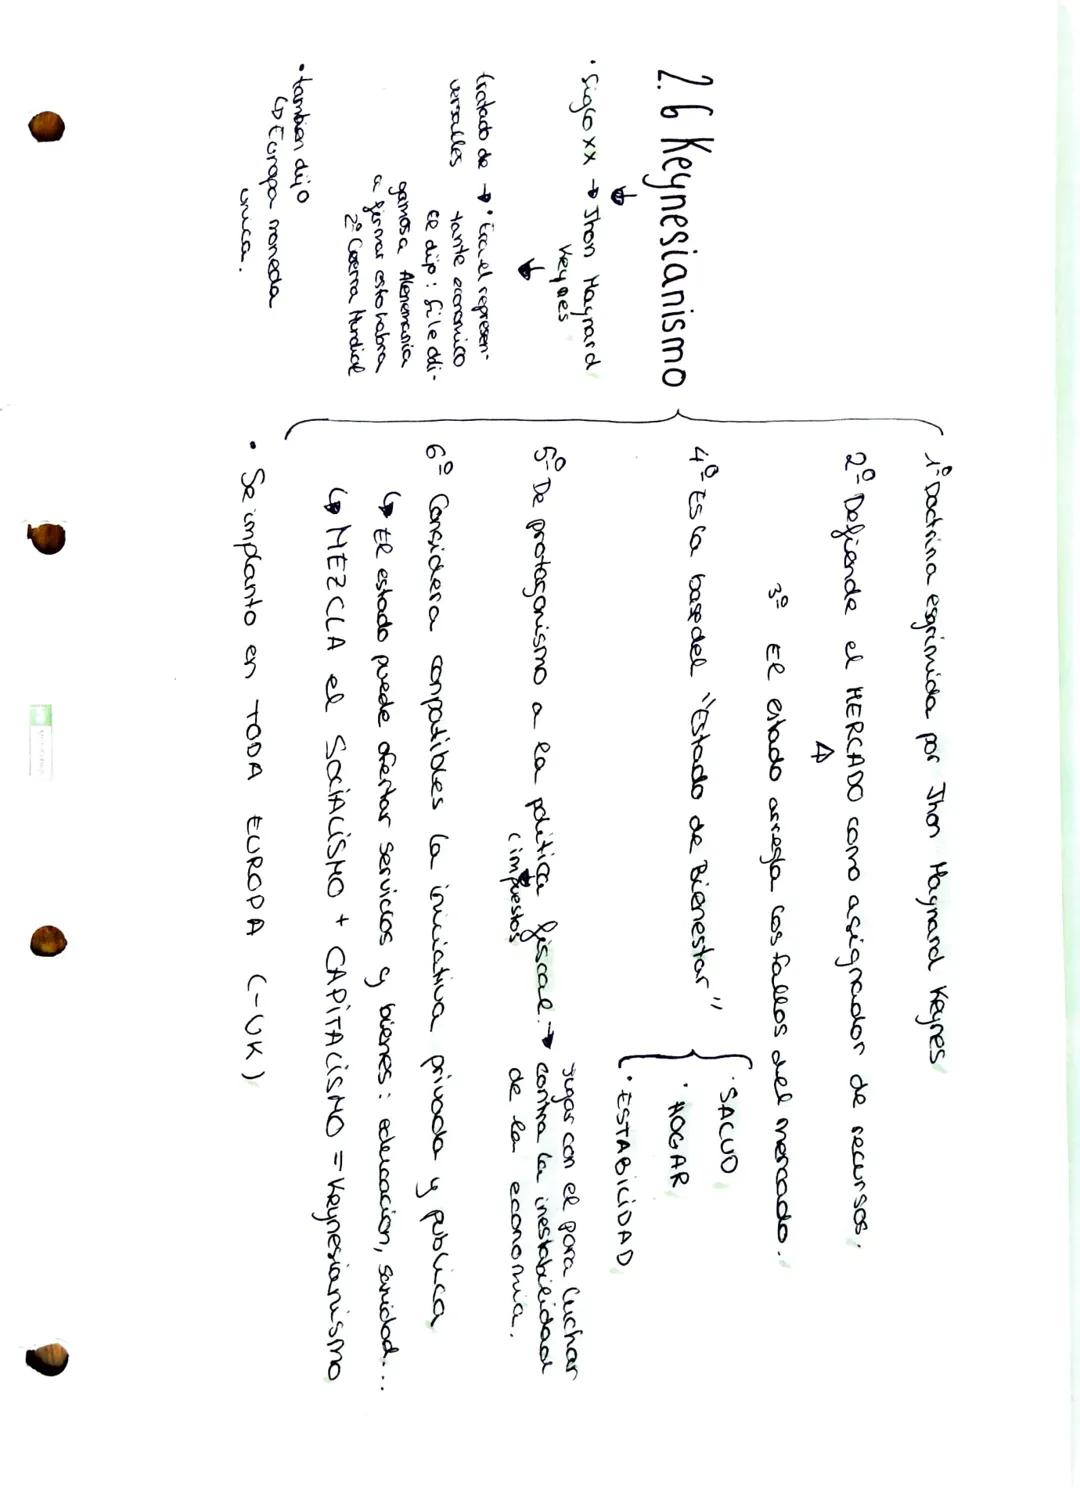 2.6 Keynesianismo
· Siglo XX → Jhon Maynard
Keynes
tratado de → · Era el represen-
versalles tante economico
El dijo: si le obli-
gamos a Alenemania
a firmar esto habra
2º Guerra Mundial
· tambien dijo
↳ Europa moneda
unica.
1º Doctrina esgrimida por Jhon Maynard Keynes
2º Defiende el MERCADO como asignador de recursos.
3º El estado arregla los fallos del mercado.
4º Es la base del "Estado de Bienestar"
· SALUD
· HOGAR
· ESTABILIDAD
5º De protagonismo a la politica fiscal. →
(impuestos
jugar con el para luchar
contra la inestabilidad
de la economia.
6º Considera conpatibles la iniciativa privada y publica
↳ El estado puede ofertar servicios y bienes: educacion, sanidad...
↳ MEZCLA el SOCIALISMO + CAPITALISMO = Keynesianismo
· Se implanto en TODA EUROPA (-UK)